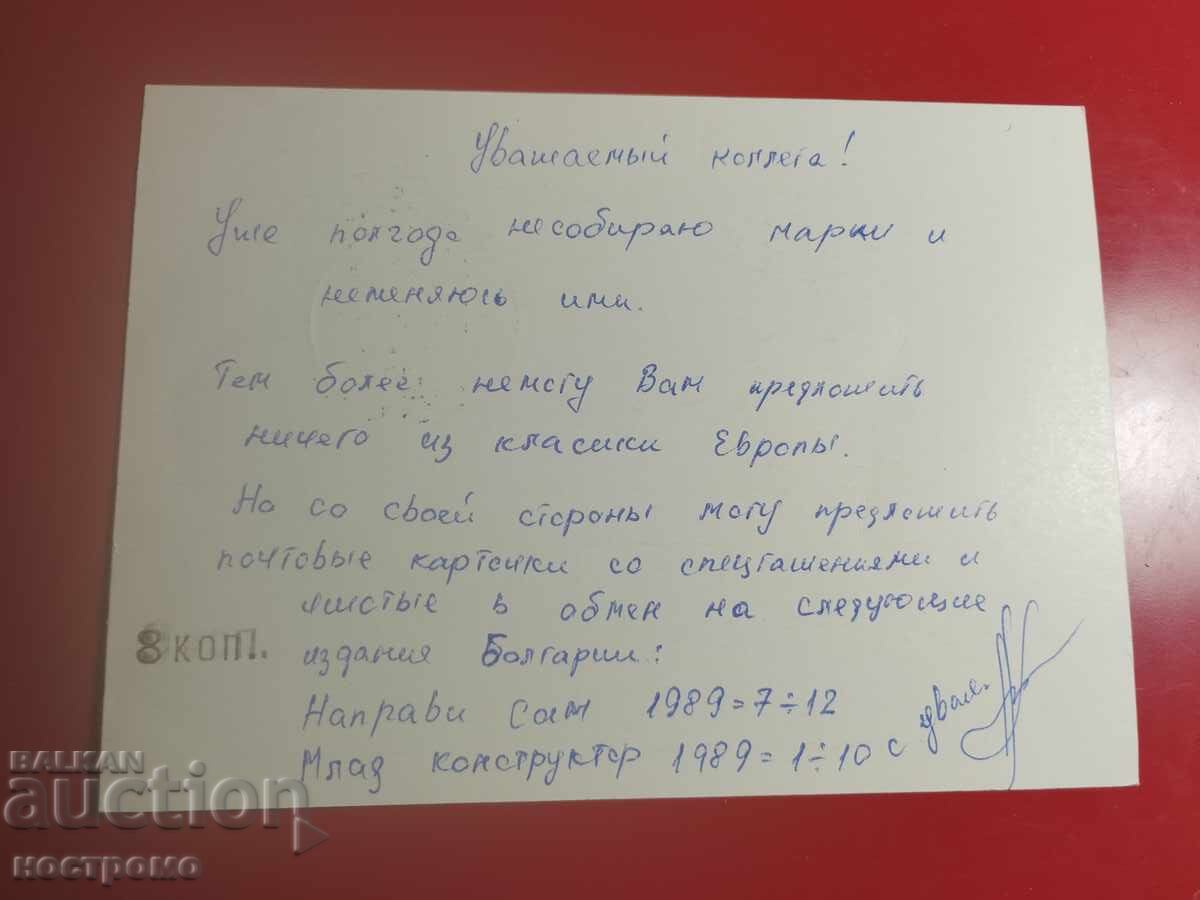 Уважаемый коллега!
Уже полгода несобираю марки и
неменяюсь ими.
Тем более немогу Вам предложить
ничего из класики Европы.
Но со своей стороны могу предложить
почтовые карточки со спецгашениями и
чистые в обмен на следующие
издания Болгарии:
Направи Сам 1989=7÷12
Млад конструктор 1989=1÷10 с
8 КОП.
BALKAN
auction
ностромо